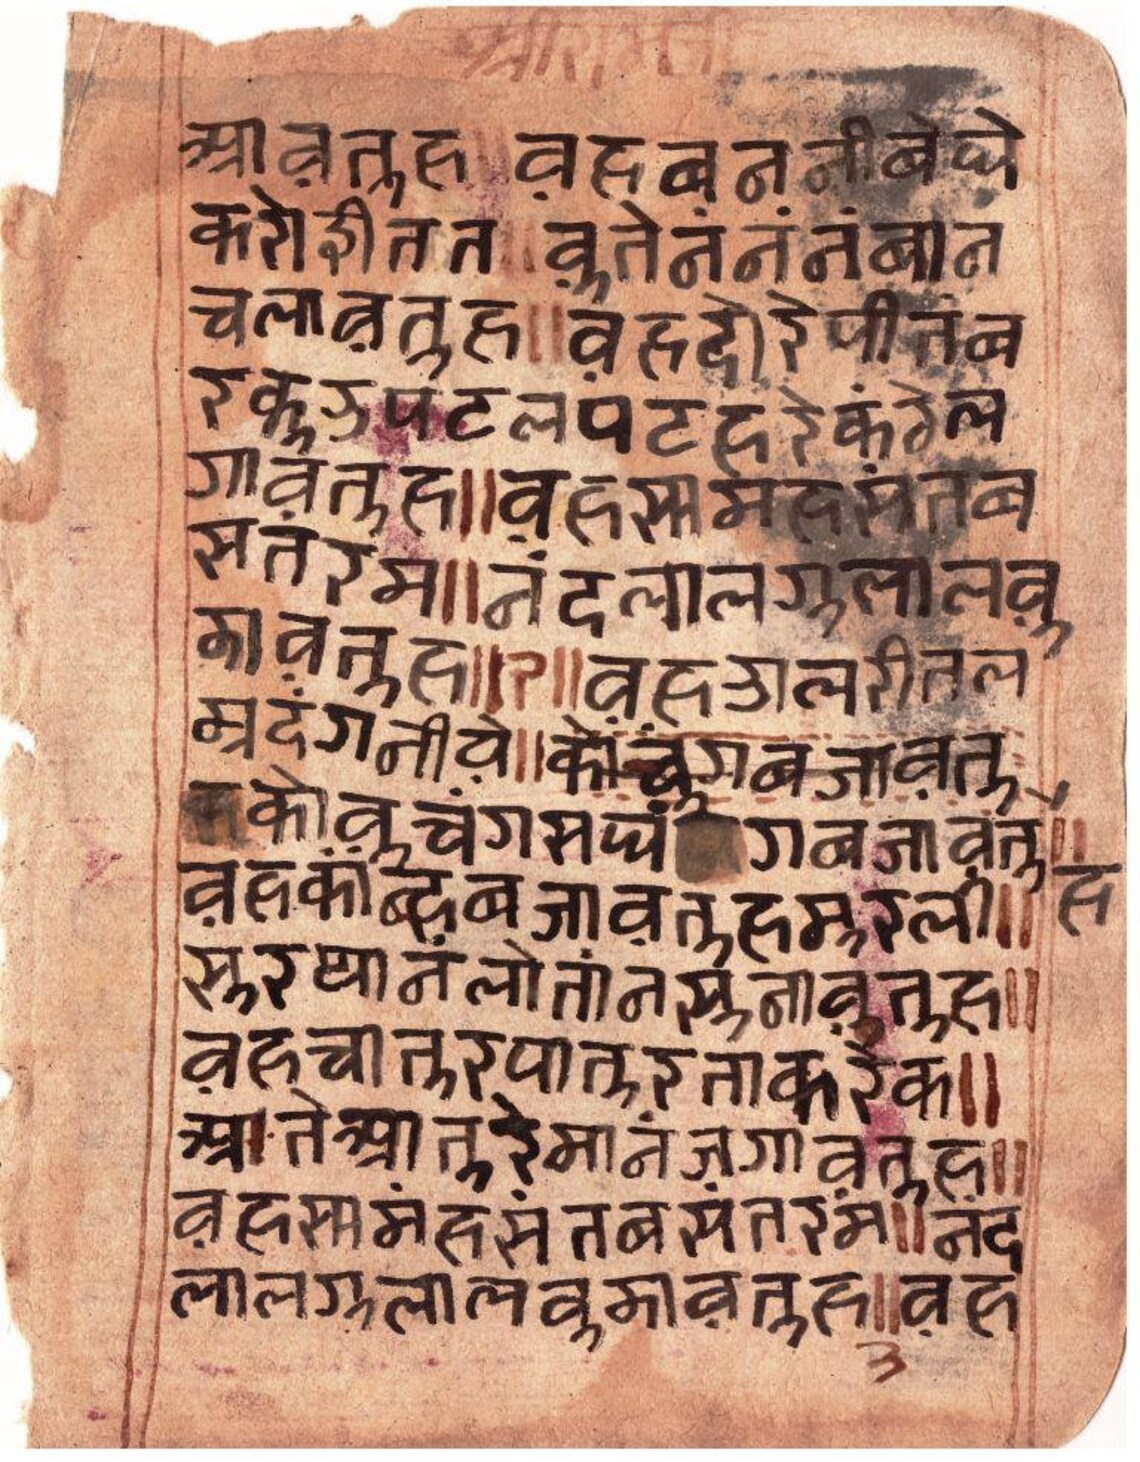 श्रीरामजी
आव़तुह॥व़हबननीबेष्षे
करोडीतत॥वुतेनंनंनंबान
चलाव़तुह॥व़हदोरेपीतंब
रकुउपटलपटहरेकंठेल
गाव़तुह॥व़हसामहसंतब
सतंरम॥नंदलालगुलालवु
माव़तुह॥२॥व़हडालरीतल
म्रदंगनीवे॥कोगबजाव़तु
कोवुचंगसष्षंगबजाव़ंतु॥
व़हकांन्हबजाव़तुहमुरली॥ह
सुरष्यानंलोतांनसुनाव़ुतुह॥
व़हचातुरपातुरताकरेक॥
आतेआतुरेमानंजगाव़तुह॥
व़हसामंहसंतबसंतरम॥नंद
लालगुलालवुमाव़तुह॥व़ह
३